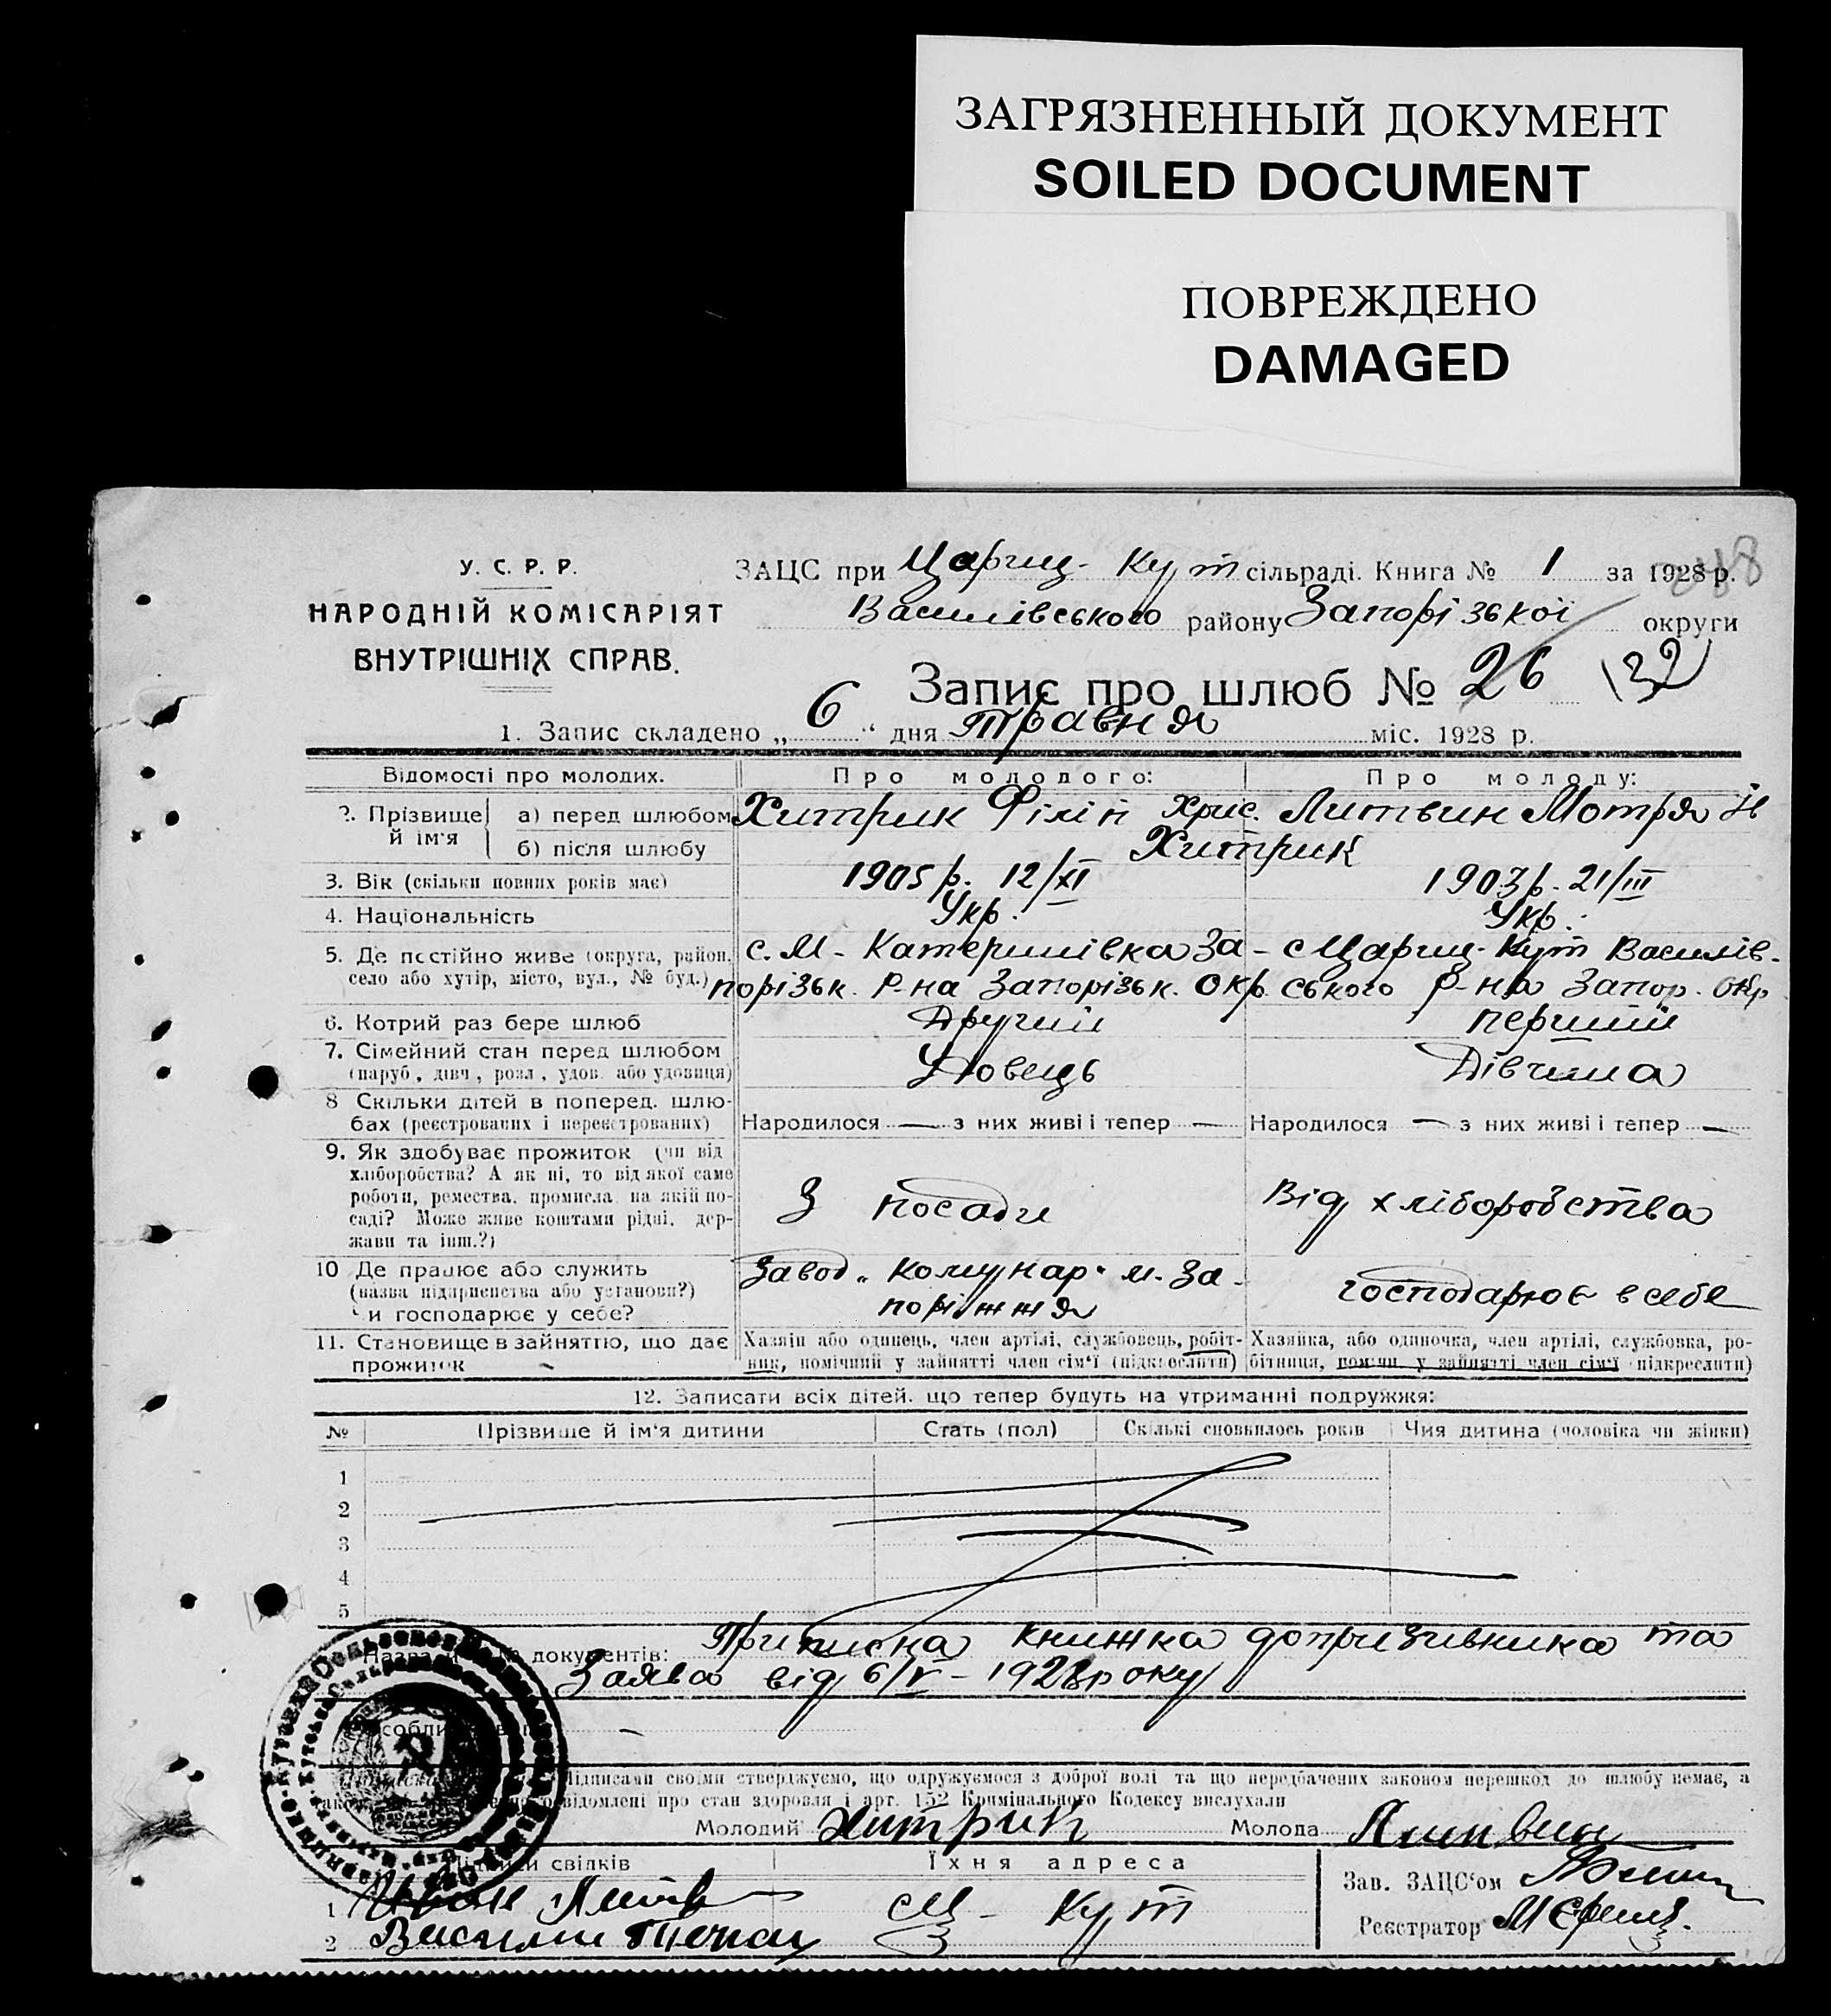 ЗАГРЯЗНЕННЫЙ ДОКУМЕНТ
SOILED DOCUMENT
ПОВРЕЖДЕНО
DAMAGED
У. С. Р. Р.
НАРОДНІЙ КОМІСАРІЯТ
ВНУТРІШНІХ СПРАВ.
ЗАЦС при Царриц- Кут сільраді. Книга № 1 за 1928 р.
Василівського району Запорізької округи
Запис про шлюб № 26 132
1. Запис складено „ 6 “ дня Травня міс. 1928 р.
Відомості про молодих. Про молодого: Про молоду:
2. Прізвище й ім'я а) перед шлюбом Хитрик Філіп Хрис. Литвин Мотря
б) після шлюбу Хитрик
3. Вік (скільки повних років має) 1905 р. 12/XI 1903 р. 21/III
4. Національність Укр. Укр.
5. Де постійно живе (округа, район, с. М- Катеринівка За- с Цариц- Кут Василів-
село або хутір, місто, вул., № буд.) порізьк. Р-на Запорізьк. Окр. ського р-на Запор. Окр
6. Котрий раз бере шлюб Другий перший
7. Сімейний стан перед шлюбом Удовець Дівчина
(паруб., дівч., розл., удов. або удовиця)
8 Скільки дітей в поперед. шлю-
бах (реєстрованих і нереєстрованих) Народилося — з них живі і тепер — Народилося — з них живі і тепер —
9. Як здобуває прожиток (чи від
хліборобства? А як ні, то від якої саме
роботи, ремества, промисла, на якій по- З посади Від хліборобства
саді? Може живе коштами рідні, дер-
жави та інш.?)
10 Де працює або служить Завод „Комунар" м. За-
(назва підприємства або установи?) поріжжя господарює в себе
Чи господарює у себе?
11. Становище в зайняттю, що дає Хазяїн або одинець, член артілі, службовець, робіт- Хазяйка, або одиночка, член артілі, службовка, ро-
прожиток ник, помічний у зайнятті член сім'ї (підкреслити) бітниця, помічн. у зайнятті член сім'ї (підкреслити)
12. Записати всіх дітей, що тепер будуть на утриманні подружжя:
№ Прізвище й ім'я дитини Стать (пол) Скількі сповнилось років Чия дитина (чоловіка чи жінки)
1
2
3
4
5
документів: Приписна книжка допризивника та
Заява від 6/V - 1928 року
Підписами своїми стверджуємо, що одружуємося з доброї волі та що передбачених законом перешкод до шлюбу немає, а
відомлені про стан здоровля і арт. 152 Кримінального Кодексу вислухали
Молодий Хитрик Молода Литвин
Підписи свідків Їхня адреса Зав. ЗАЦС'ом
1 Иван
2 Василий с Ц- Кут Реєстратор